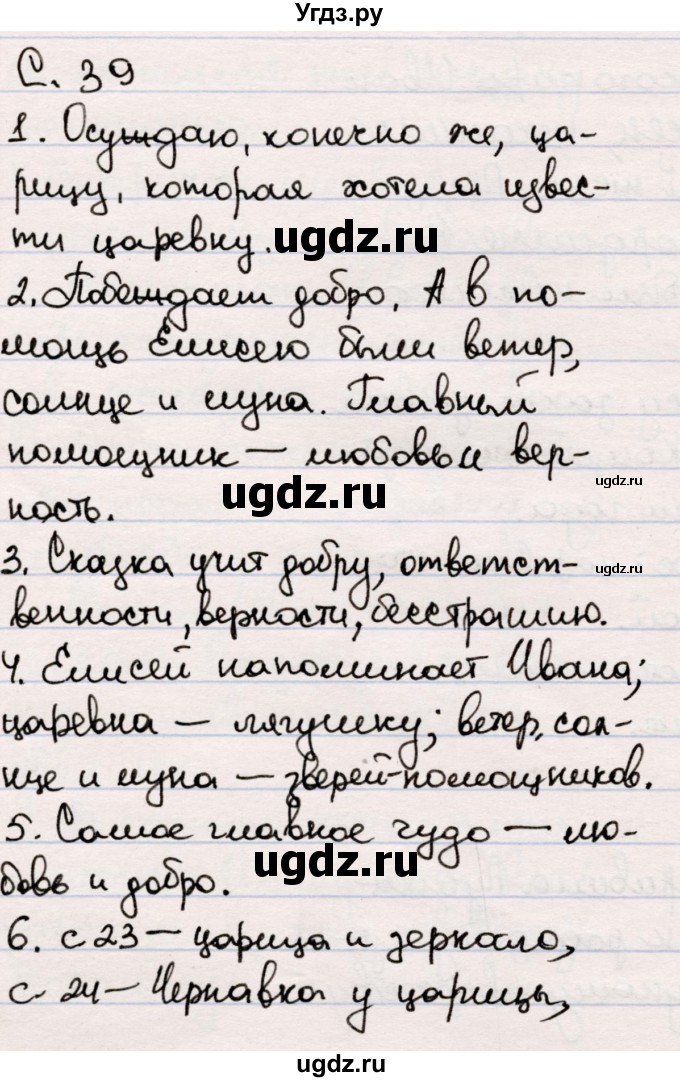 Угдз.ру
С. 39
1. Осуждаю, конечно же, ца-
рицу, которая хотела извес-
ти царевну.
ugdz.ru
2. Побеждает добро. А в по-
мощь Елисею были ветер,
солнце и луна. Главный
помощник — любовь и вер-
ugdz.ru
ugdz.ru
ность.
3. Сказка учит добру, ответст-
ugdz.ru
венности, верности, бесстрашию.
4. Елисей напоминает Ивана;
царевна — лягушку; ветер, сол-
нце и луна — зверей-помощников.
5. Самое главное чудо — лю-
ugdz.ru
бовь и добро.
6. с 23 — царица и зеркало,
с. 24 — Чернавка у царицы,
ugdz.ru